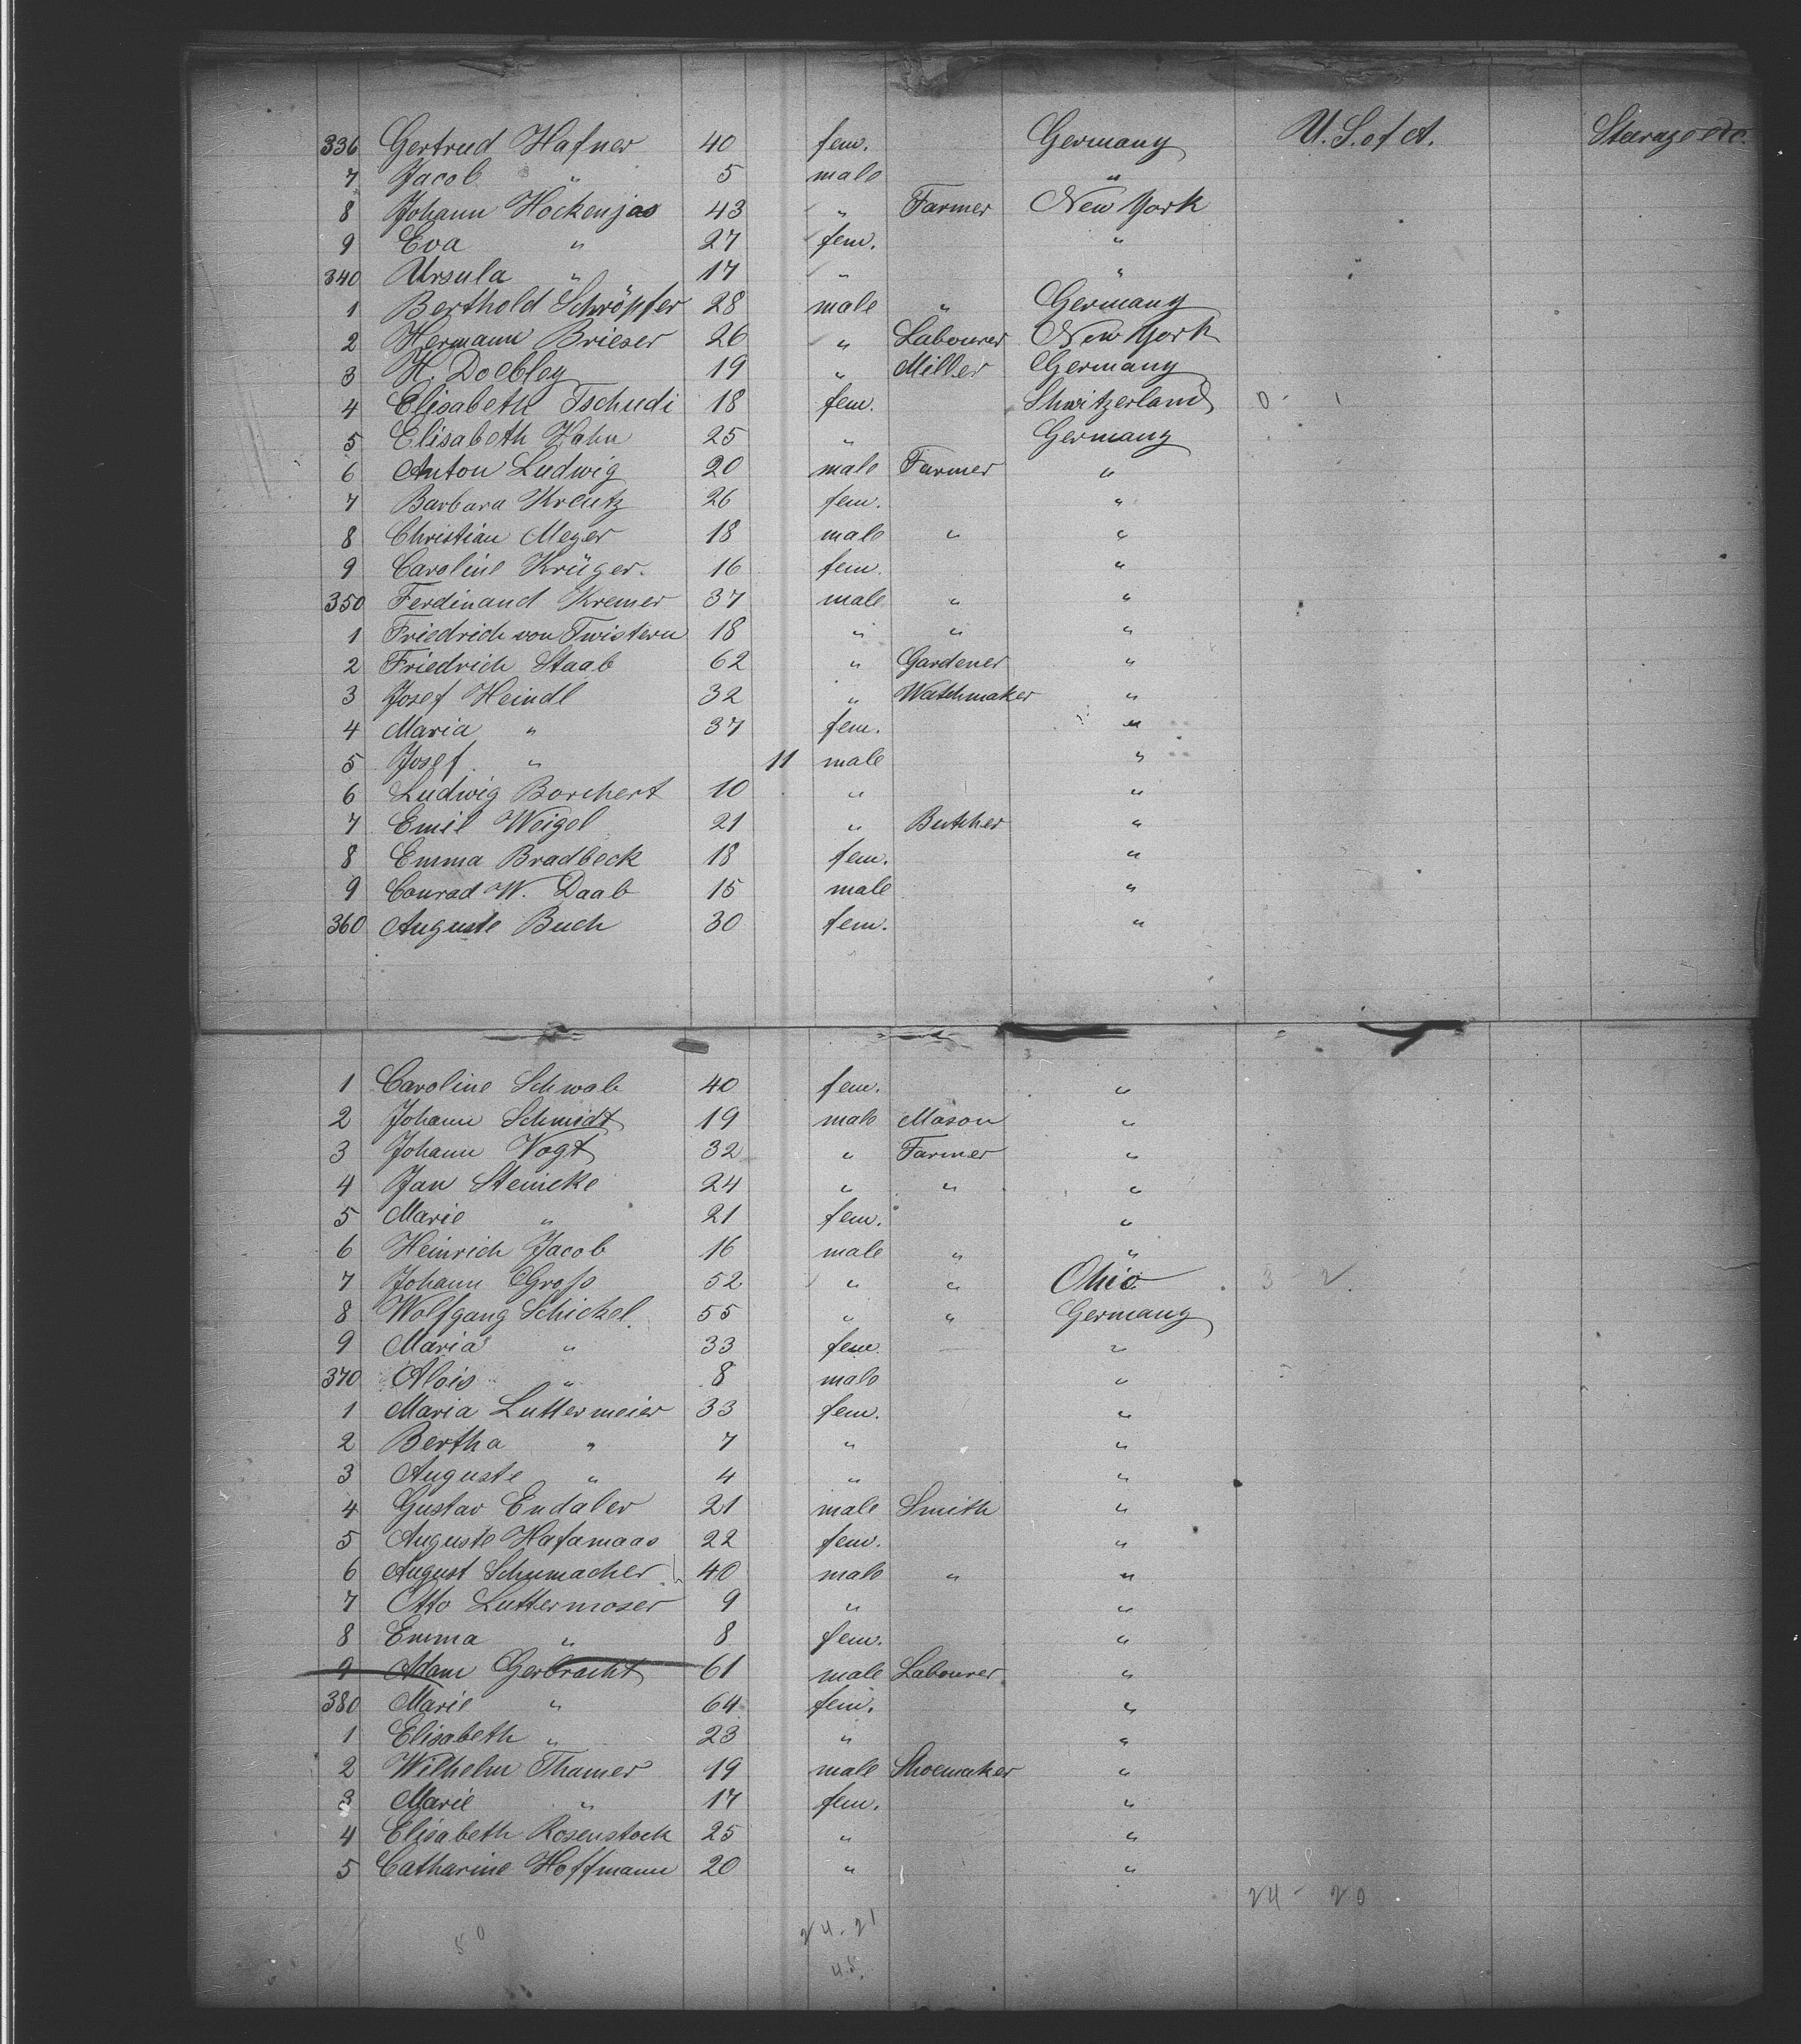 336 Gertrud Hafner 40 fem. Germany U. S. of A. Steerage etc.
7 Jacob " 5 male "
8 Johann Hockenjos 43 " Farmer New York
9 Eva " 27 fem. "
340 Ursula " 17 " "
1 Berthold Schröpfer 28 male " Germany
2 Hermann Brieser 26 " Labourer New York
3 H. Doebley 19 " Miller Germany
4 Elisabeth Tschudi 18 fem. Shwitzerland 0 - 1
5 Elisabeth Hahn 25 " Germany
6 Anton Ludwig 20 male Farmer "
7 Barbara Kreutz 26 fem. "
8 Christian Meyer 18 male " "
9 Caroline Krüger. 16 fem. "
350 Ferdinand Kremer 37 male " "
1 Friedrich von Twistern 18 " " "
2 Friedrich Staab 62 " Gardener "
3 Josef Heindl 32 " Watchmaker "
4 Maria " 37 fem. "
5 Josef " 11 male "
6 Ludwig Borchert 10 " "
7 Emil Weigel 21 " Butcher "
8 Emma Bradbeck 18 fem. "
9 Conrad W. Daab 15 male "
360 Auguste Buch 30 fem. "
1 Caroline Schwab 40 fem. "
2 Johann Schmidt 19 male Mason "
3 Johann Vogt 32 " Farmer "
4 Jan Steincke 24 " " "
5 Marie " 21 fem. "
6 Heinrich Jacob 16 male " "
7 Johann Groſs 52 " " Ohio 3 - 2
8 Wolfgang Schickel 55 " " Germany
9 Maria " 33 fem. "
370 Alois " 8 male "
1 Maria Luttermeier 33 fem. "
2 Bertha " 7 " "
3 Auguste " 4 " "
4 Gustav Endaler 21 male Smith "
5 Auguste Hafamaas 22 fem. "
6 August Schumacher 40 male " "
7 Otto Luttermoser 9 " "
8 Emma " 8 fem. "
9 Adam Gerbracht 61 male Labourer "
380 Marie " 64 fem. "
1 Elisabeth " 23 " "
2 Wilhelm Thamer 19 male Shoemaker "
3 Marie " 17 fem. "
4 Elisabeth Rosenstock 25 " "
5 Catharine Hoffmann 20 " "
24 - 20
50 24 - 21
45